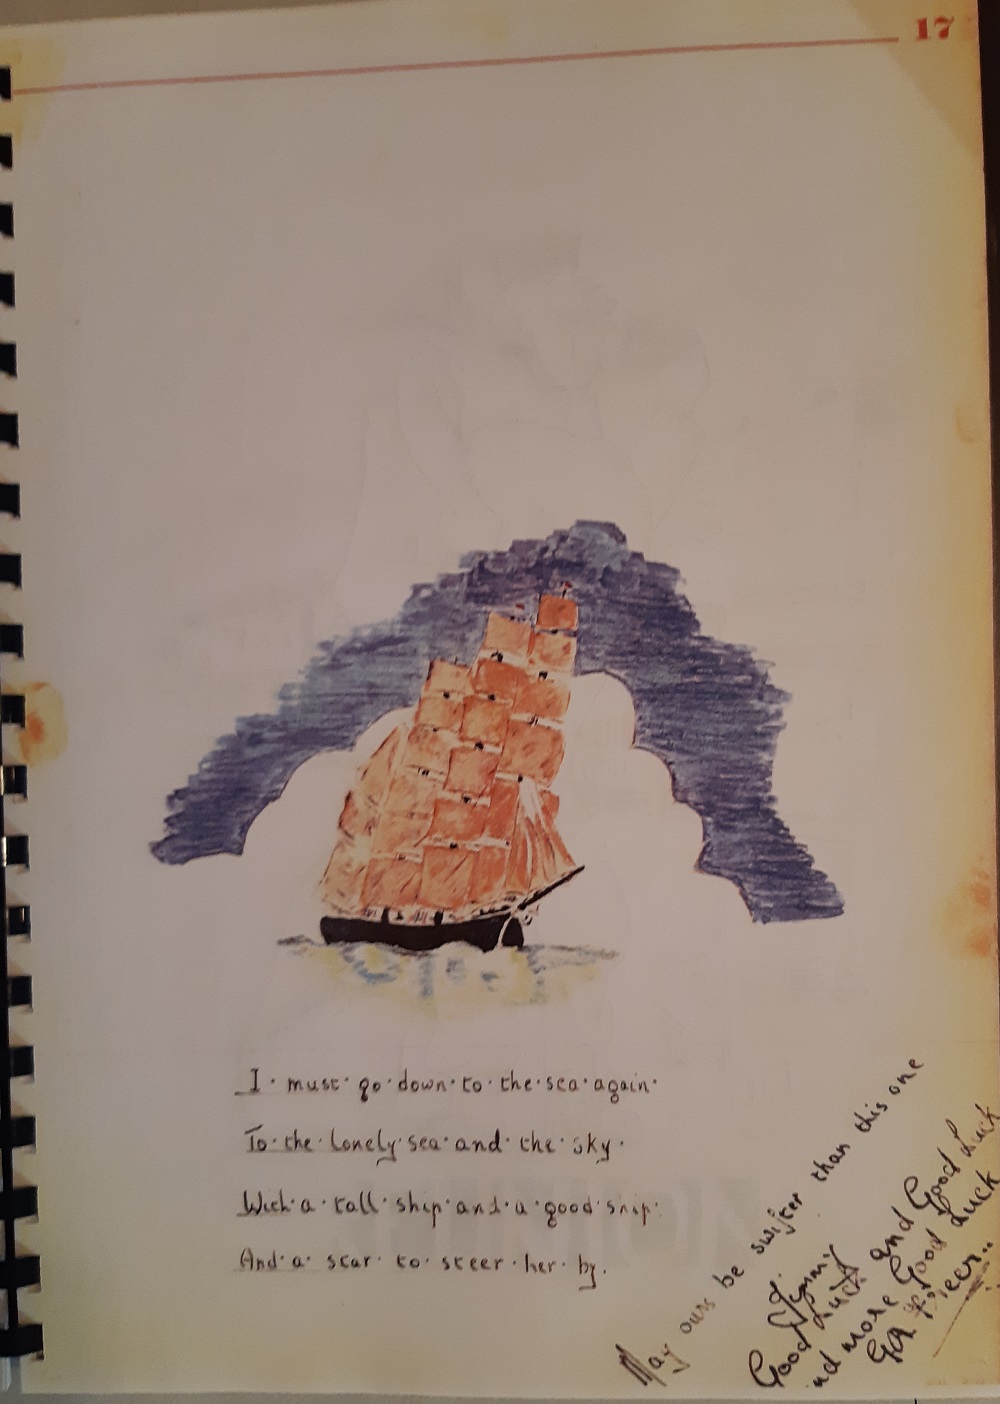 17
I · must · go · down · to · the · sea · again ·
To · the · lonely · sea · and · the · sky ·
With · a · tall · ship · and · a · good · snip ·
And · a · star · to · steer · her · by .
May ours be swifter than this one
Jimmy
Good Luck and Good Luck
nd more Good Luck